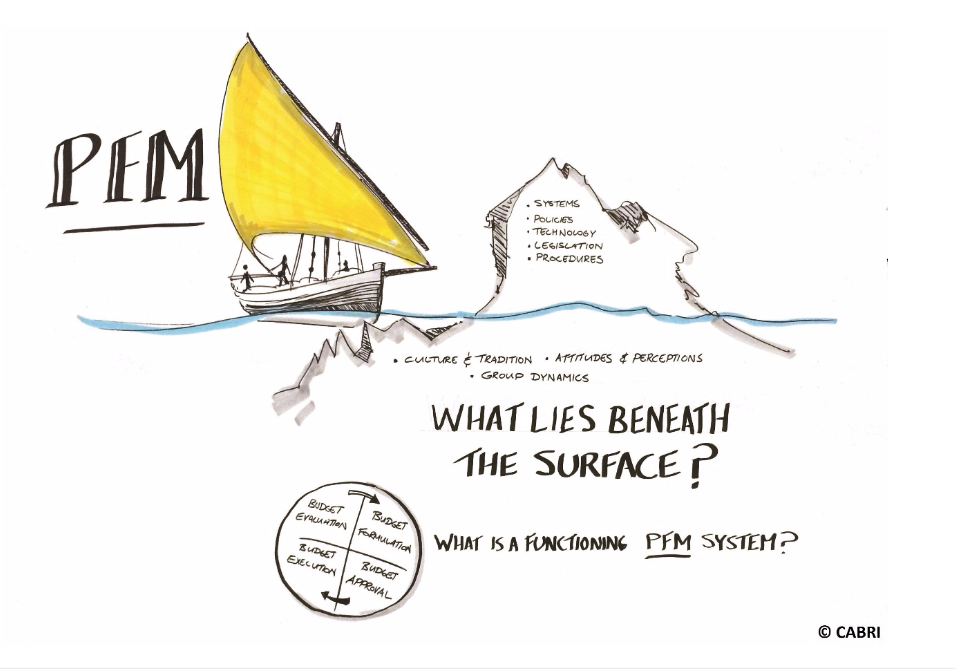 PFM
• SYSTEMS
• POLICIES
• TECHNOLOGY
• LEGISLATION
• PROCEDURES
• CULTURE & TRADITION • ATTITUDES & PERCEPTIONS
• GROUP DYNAMICS
WHAT LIES BENEATH
THE SURFACE?
BUDGET
EVALUATION
BUDGET
FORMULATION
BUDGET
EXECUTION
BUDGET
APPROVAL
WHAT IS A FUNCTIONING PFM SYSTEM?
© CABRI